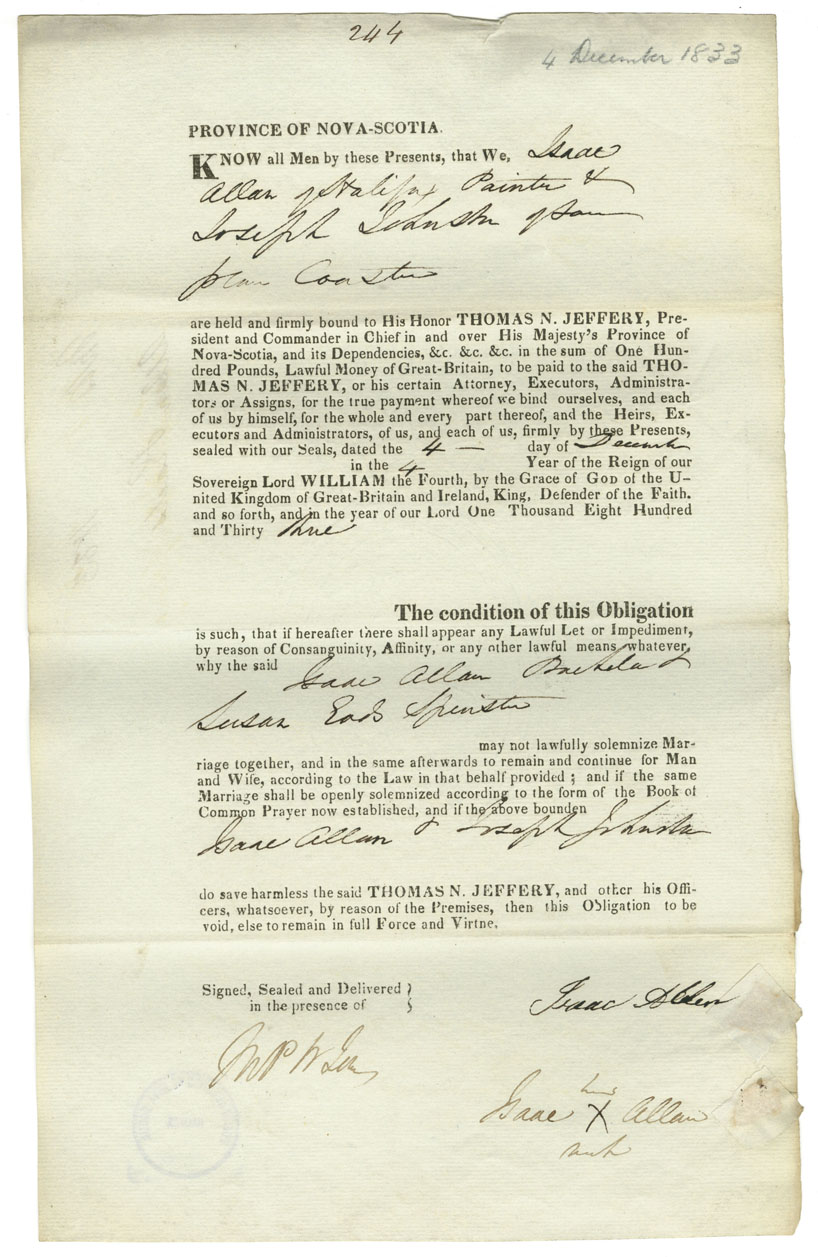 244
4 December 1833
PROVINCE OF NOVA-SCOTIA.
KNOW all Men by these Presents, that We, Isaac
Allan of Halifax Painter &
Joseph Johnston of same
place Coaster
are held and firmly bound to His Honor THOMAS N. JEFFERY, Pre-
sident and Commander in Chief in and over His Majesty's Province of
Nova-Scotia, and its Dependencies, &c. &c. &c. in the sum of One Hun-
dred Pounds, Lawful Money of Great-Britain, to be paid to the said THO-
MAS N. JEFFERY, or his certain Attorney, Executors, Administra-
tors or Assigns, for the true payment whereof we bind ourselves, and each
of us by himself, for the whole and every part thereof, and the Heirs, Ex-
ecutors and Administrators, of us, and each of us, firmly by these Presents,
sealed with our Seals, dated the 4 — day of December
in the 4 Year of the Reign of our
Sovereign Lord WILLIAM the Fourth, by the Grace of GOD of the U-
nited Kingdom of Great-Britain and Ireland, King, Defender of the Faith.
and so forth, and in the year of our Lord One Thousand Eight Hundred
and Thirty three
The condition of this Obligation
is such, that if hereafter there shall appear any Lawful Let or Impediment,
by reason of Consanguinity, Affinity, or any other lawful means whatever,
why the said Isaac Allan Bachelor &
Susan Spinster
may not lawfully solemnize Mar-
riage together, and in the same afterwards to remain and continue for Man
and Wife, according to the Law in that behalf provided ; and if the same
Marriage shall be openly solemnized according to the form of the Book of
Common Prayer now established, and if the above bounden
Isaac Allan & Joseph Johnston
do save harmless the said THOMAS N. JEFFERY, and other his Offi-
cers, whatsoever, by reason of the Premises, then this Obligation to be
void, else to remain in full Force and Virtne.
Signed, Sealed and Delivered }
in the presence of }
Isaac
his
Isaac X Allan
mark